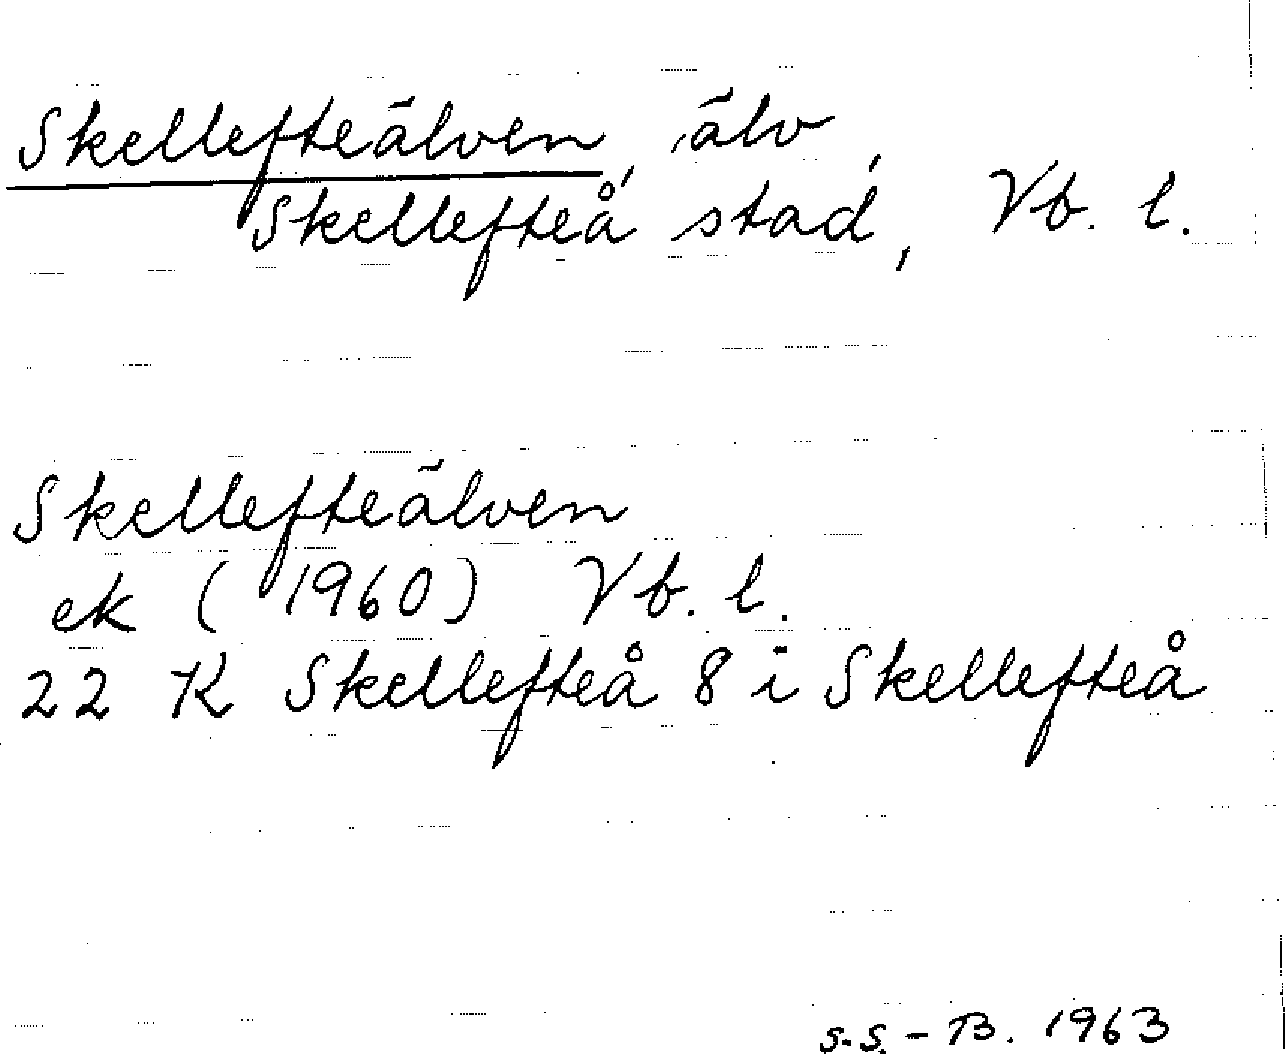 Skellefteälven, älv,
Skellefteå stad, Vb. l.
Skellefteälven
ek (1960) Vb. l.
22 K Skellefteå 8 i Skellefteå
S.S. - B. 1963